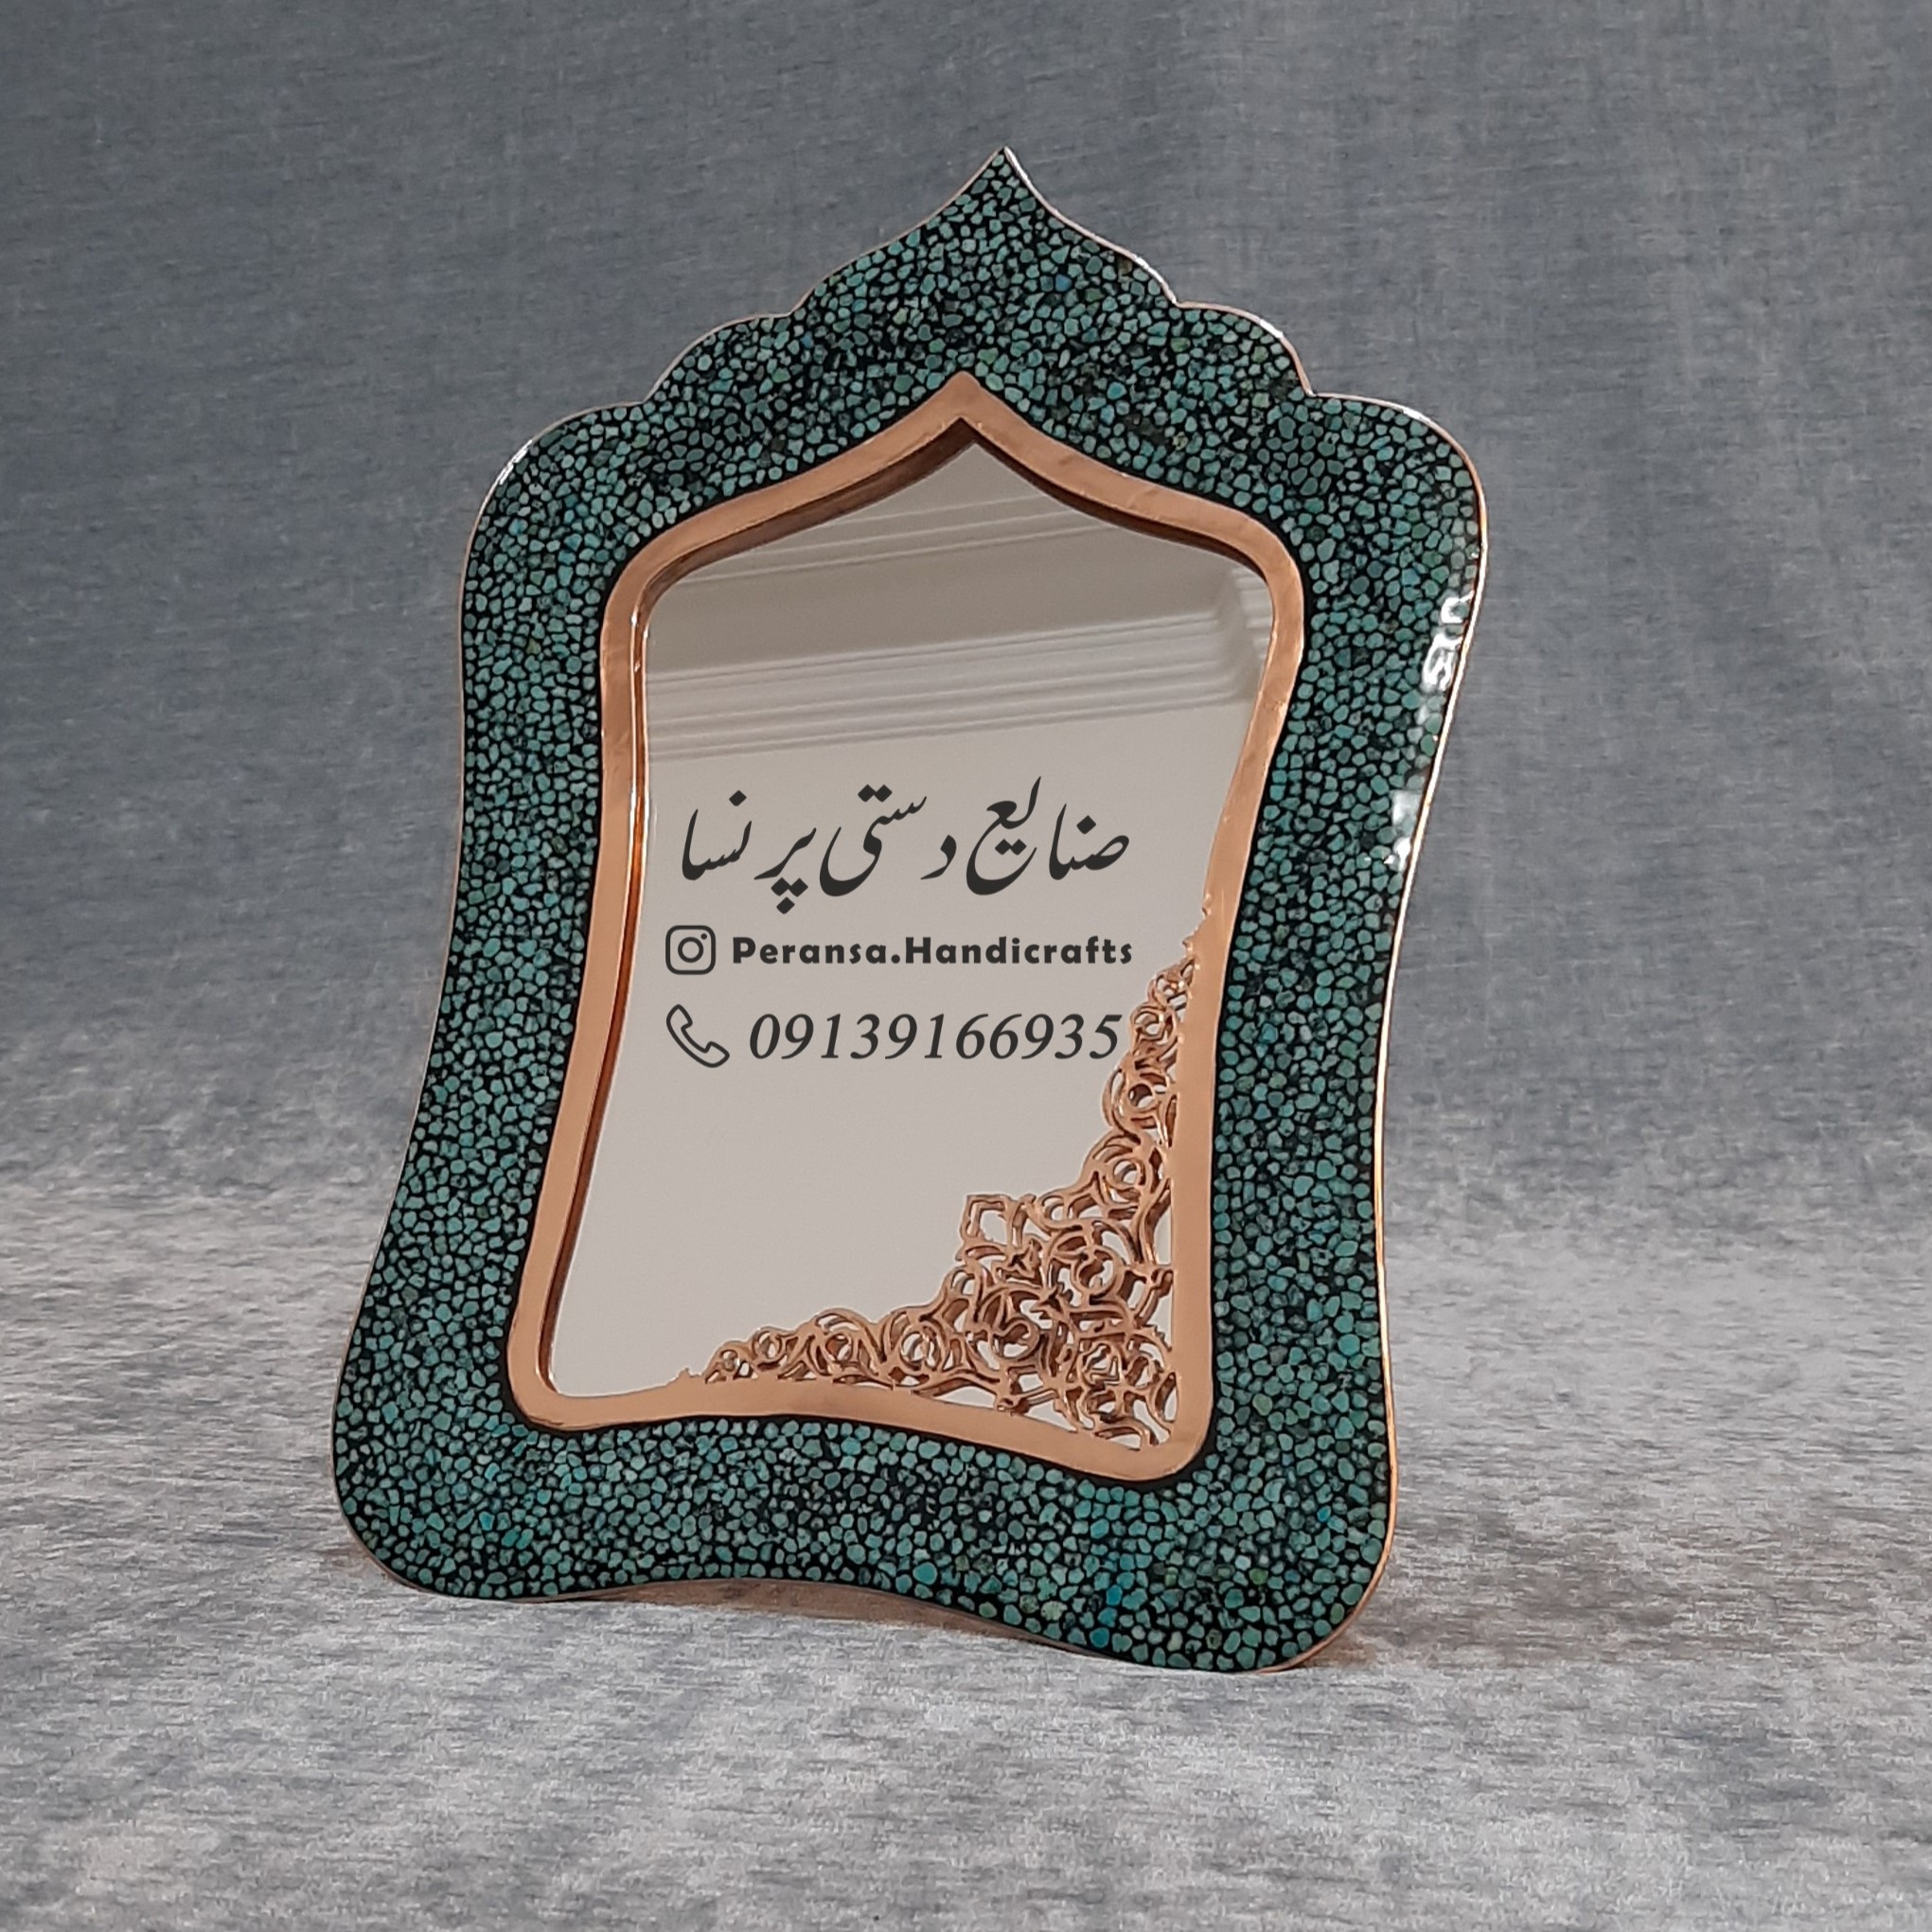 صنایع دستی پرنسا
Peransa.Handicrafts
09139166935